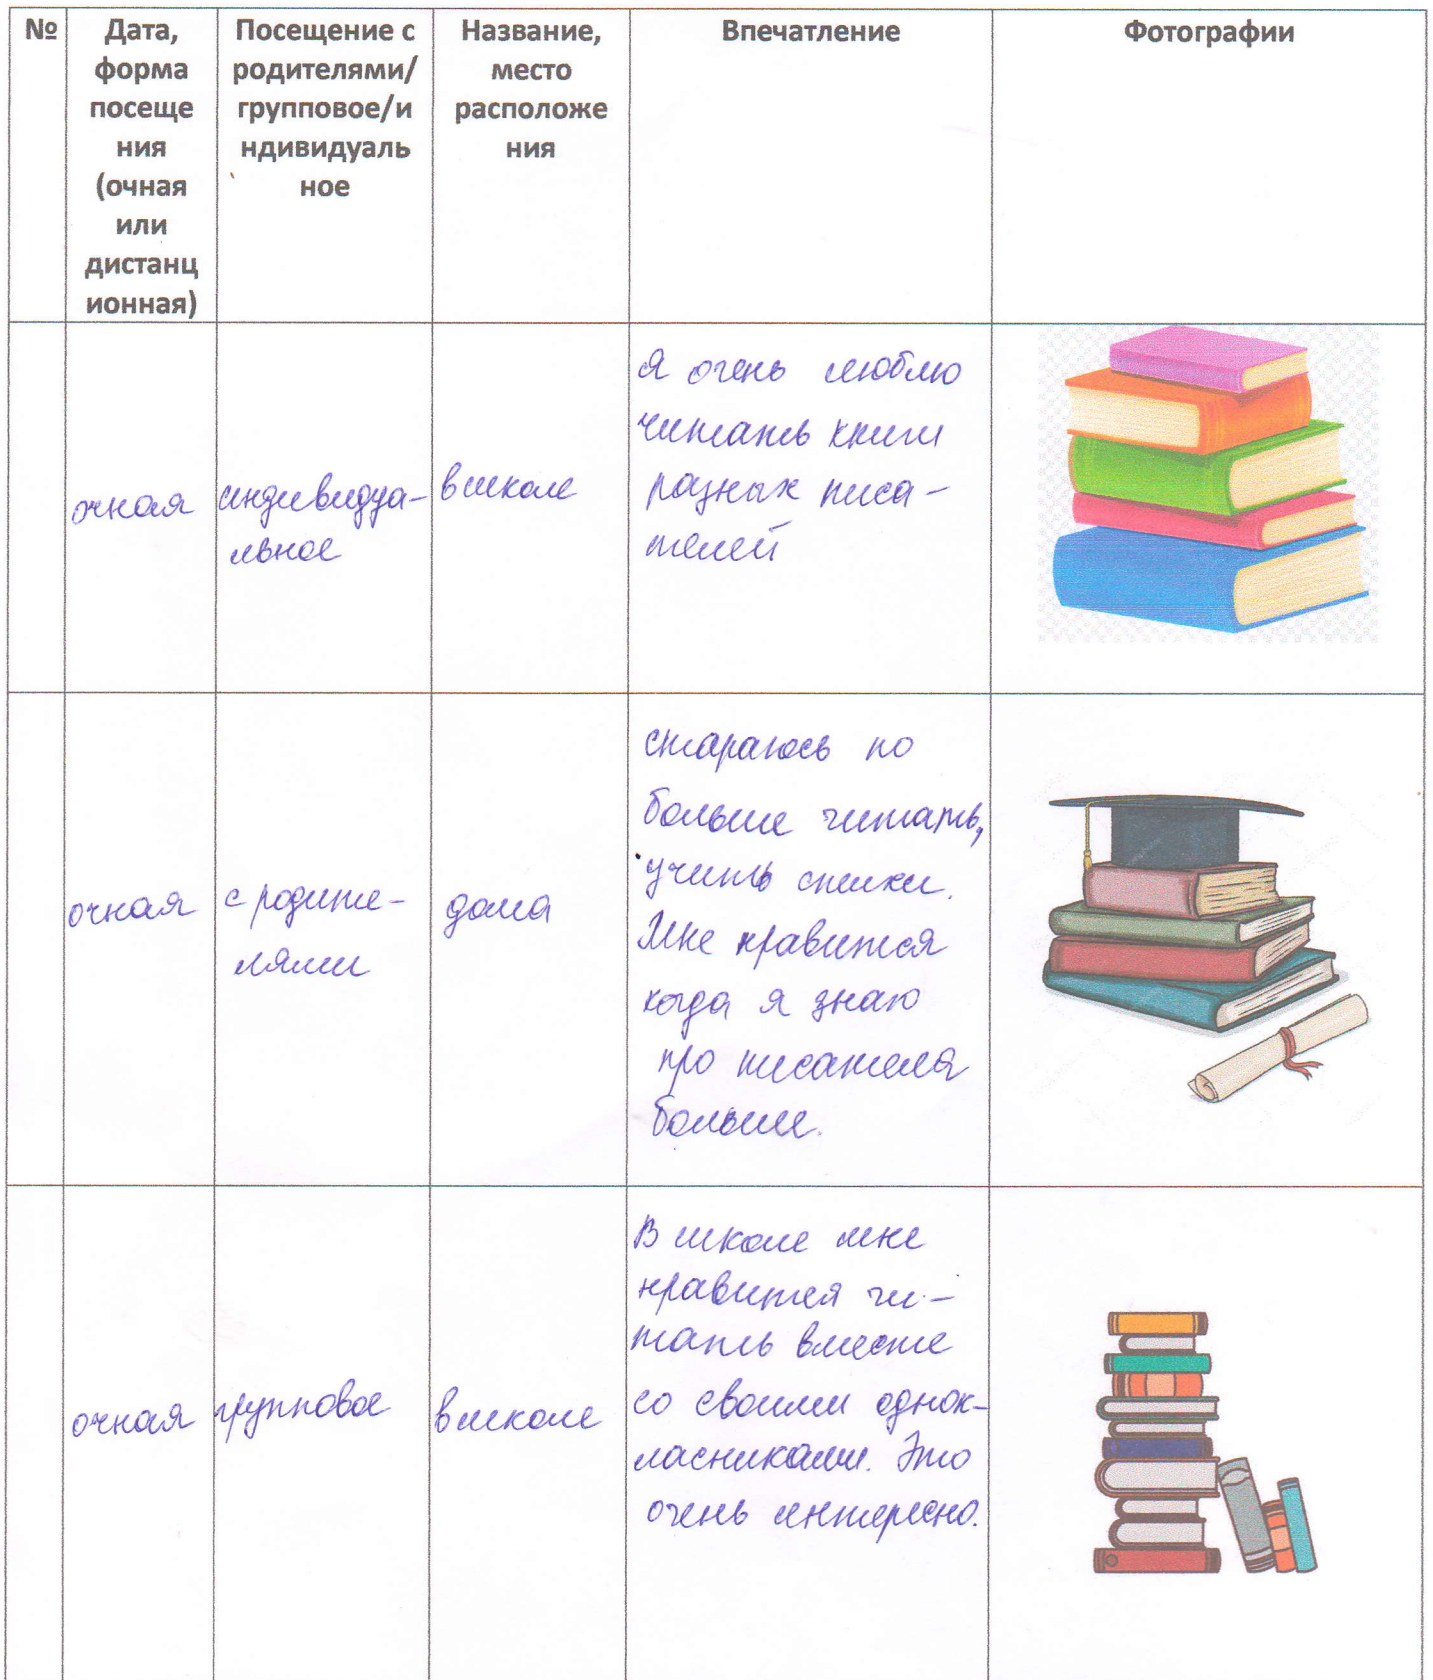 №
Дата,
форма
посеще
ния
(очная
или
дистанц
ионная)
Посещение с
родителями/
групповое/и
ндивидуаль
ное
Название,
место
расположе
ния
Впечатление
Фотографии
очная
индивидуа-
льное
в школе
Я очень люблю
читать книги
разных писа-
телей
очная
с родите-
лями
дома
стараюсь по
больше читать,
учить стихи.
Мне нравится
когда я знаю
про писателя
больше.
очная
групповое
в школе
В школе мне
нравится чи-
тать вместе
со своими однок-
ласниками. Это
очень интересно.